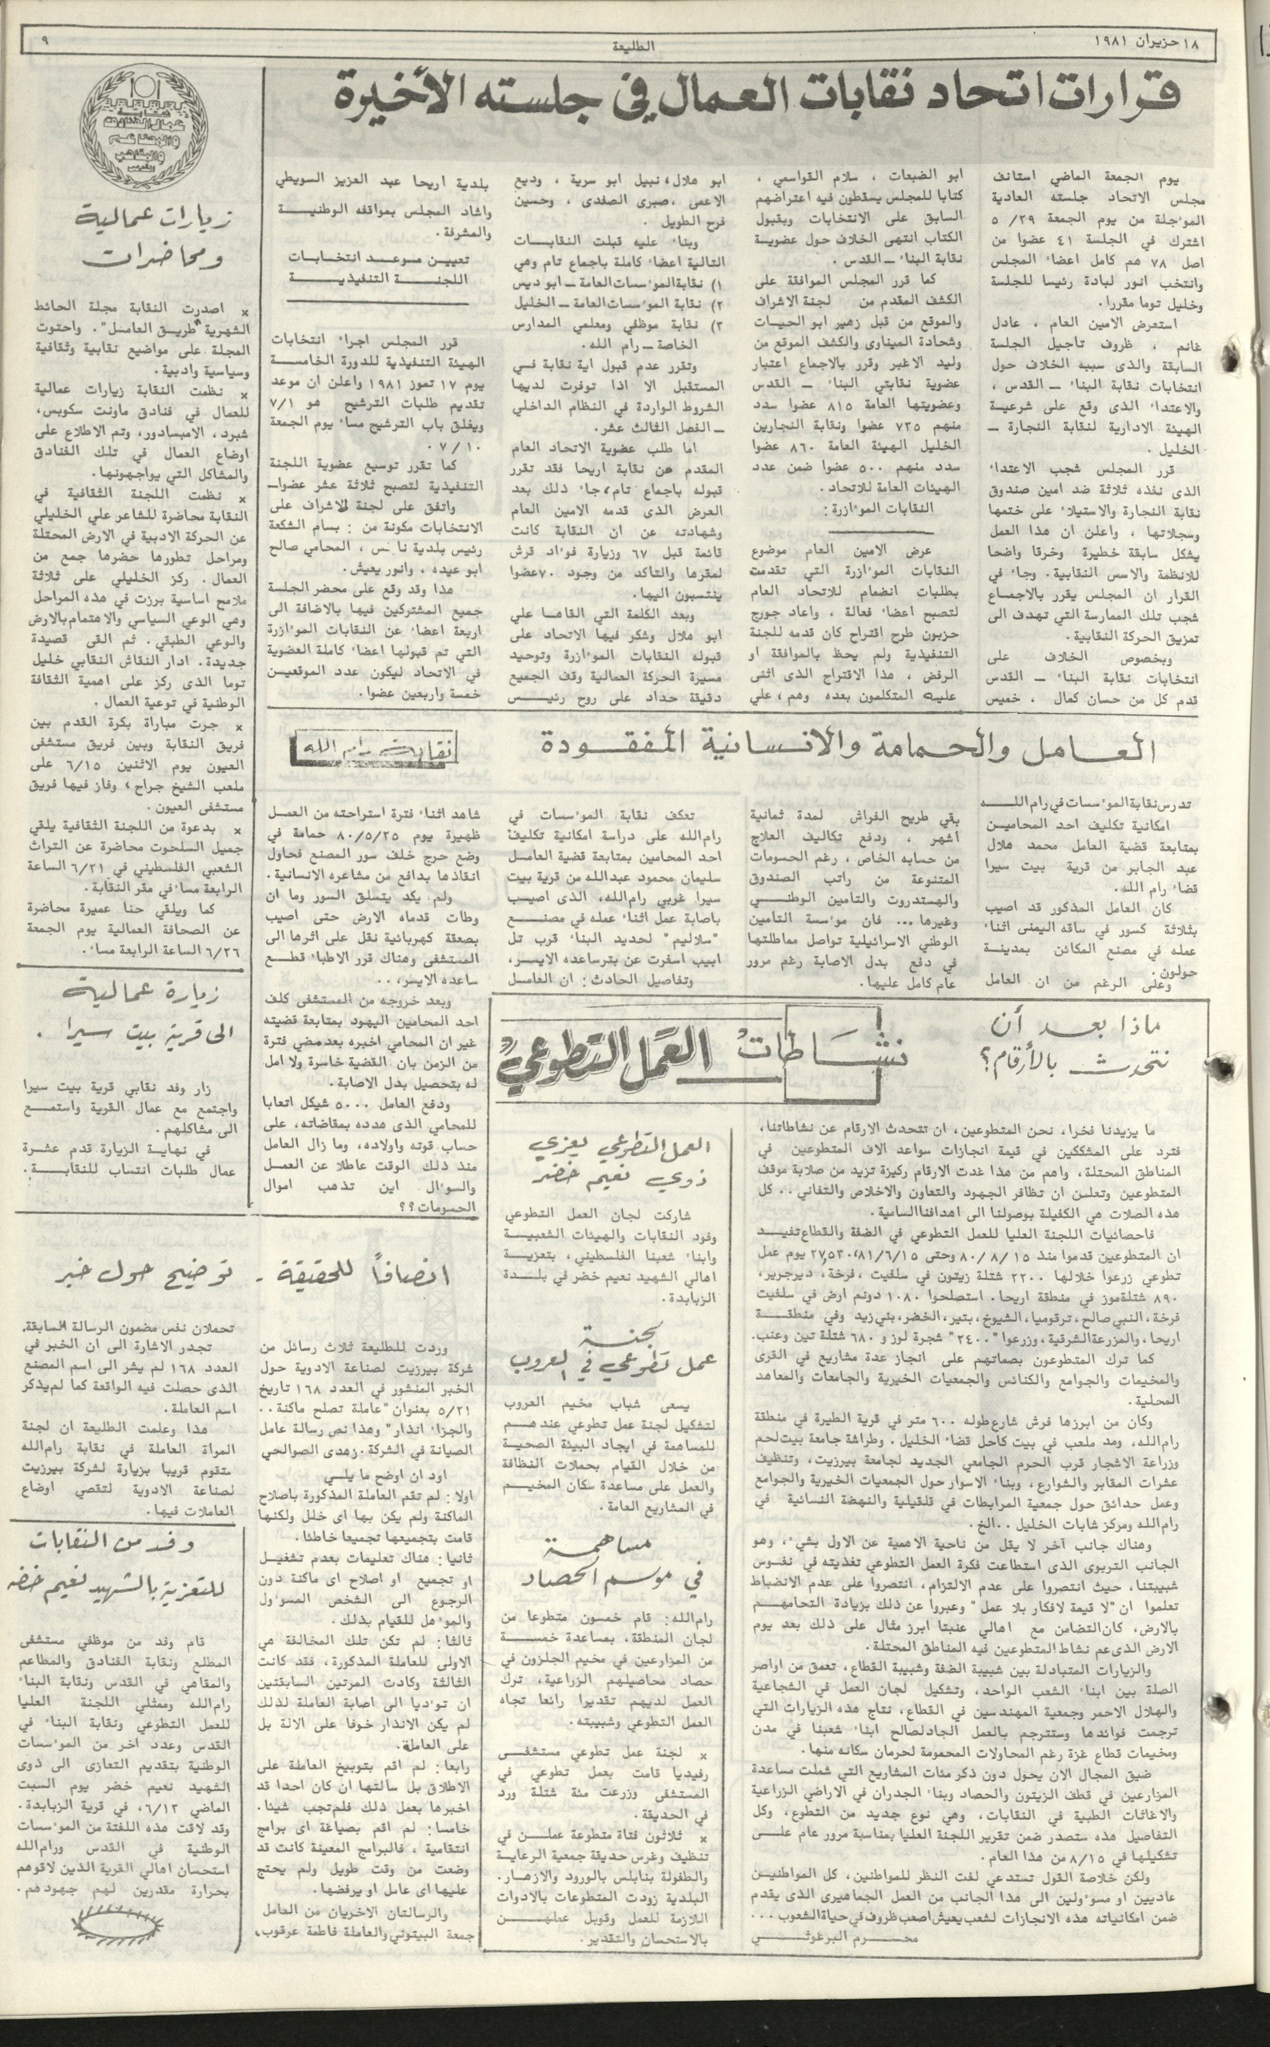 ١٨ حزيران ١٩٨١
الطليعة
٩
قرارات اتحاد نقابات العمال في جلسته الأخيرة
يوم الجمعة الماضي استانف
مجلس الاتحاد جلسته العادية
الموءجلة من يوم الجمعة ٢٩/ ٥
اشترك في الجلسة ٤١ عضوا من
اصل ٧٨ هم كامل اعضاء المجلس
وانتخب انور لبادة رئيسا للجلسة
وخليل توما مقررا.
استعرض الامين العام ، عادل
غانم ، ظروف تاجيل الجلسة
السابقة والذى سببه الخلاف حول
انتخابات نقابة البناء ــ القدس ،
والاعتداء الذى وقع على شرعية
الهيئة الادارية لنقابة النجارة ــ
الخليل .
قرر المجلس شجب الاعتداء
الذى نفذه ثلاثة ضد امين صندوق
نقابة النجارة والاستيلاء على ختمها
وسجلاتها ، واعلن ان هذا العمل
يشكل سابقة خطيرة وخرقا واضحا
للانظمة والاسس النقابية. وجاء في
القرار ان المجلس يقرر بالاجماع
شجب تلك الممارسة التي تهدف الى
تمزيق الحركة النقابية.
وبخصوص الخلاف على
انتخابات نقابة البناء ــ القدس
قدم كل من حسان كمال ، خميس
ابو الضبعات ، سلام القواسمي ،
كتابا للمجلس يسقطون فيه اعتراضهم
السابق على الانتخابات وبقبول
الكتاب انتهى الخلاف حول عضوية
نقابة البناء ــ القدس .
كما قرر المجلس الموافقة على
الكشف المقدم من لجنة الاشراف
والموقع من قبل زهير ابو الحيات
وشحادة الميناوى والكشف الموقع من
وليد الاغبر وقرر بالاجماع اعتبار
عضوية نقابتي البناء ــ القدس
وعضويتها العامة ٨١٥ عضوا سدد
منهم ٧٣٥ عضوا ونقابة النجارين
الخليل الهيئة العامة ٨٦٠ عضوا
سدد منهم ٥٠٠ عضوا ضمن عدد
الهيئات العامة للاتحاد.
النقابات الموءازرة :
عرض الامين العام موضوع
النقابات الموءازرة التي تقدمت
بطلبات انضمام للاتحاد العام
لتصبح اعضاء فعالة ، واعاد جورج
حزبون طرح اقتراح كان قدمه للجنة
التنفيذية ولم يحظ بالموافقة او
الرفض ، هذا الاقتراح الذى اثنى
عليه المتكلمون بعده وهم، علي
ابو هلال، نبيل ابو سرية ، وديع
الاعمى ، صبرى الصفدى ، وحسين
فرح الطويل .
وبناء عليه قبلت النقابات
التالية اعضاء كاملة باجماع تام وهي
١) نقابة الموءسسات العامة ــ ابو ديس
٢) نقابة الموءسسات العامة ــ الخليل
٣) نقابة موظفي ومعلمي المدارس
الخاصة ــ رام الله.
وتقرر عدم قبول اية نقابة في
المستقبل الا اذا توفرت لديها
الشروط الواردة في النظام الداخلي
ــ الفصل الثالث عشر.
اما طلب عضوية الاتحاد العام
المقدم من نقابة اريحا فقد تقرر
قبوله باجماع تام، جاء ذلك بعد
العرض الذى قدمه الامين العام
وشهادته عن ان النقابة كانت
قائمة قبل ٦٧ وزيارة فواد قرش
لمقرها والتأكد من وجود ٧٠ عضوا
ينتسبون اليها.
وبعد الكلمة التي القاها علي
ابو هلال وشكر فيها الاتحاد على
قبوله النقابات الموءازرة وتوحيد
مسيرة الحركة العمالية وقف الجميع
دقيقة حداد على روح رئيس
بلدية اريحا عبد العزيز السويطي
واشاد المجلس بمواقفه الوطنية
والمشرفة.
تعيين موعد انتخابات
اللجنة التنفيذية
قرر المجلس اجراء انتخابات
الهيئة التنفيذية للدورة الخامسة
يوم ١٧ تموز ١٩٨١ واعلن ان موعد
تقديم طلبات الترشيح هو ٧/١
ويغلق باب الترشيح مساء يوم الجمعة
٧/١٠.
كما تقرر توسيع عضوية اللجنة
التنفيذية لتصبح ثلاثة عشر عضوا ــ
واتفق على لجنة للاشراف على
الانتخابات مكونة من : بسام الشكعة
رئيس بلدية نابلس ، المحامي صالح
ابو عيده ، وانور يعيش.
هذا وقد وقع على محضر الجلسة
جميع المشتركين فيها بالاضافة الى
اربعة اعضاء عن النقابات الموءازرة
التي تم قبولها اعضاء كاملة العضوية
في الاتحاد ليكون عدد الموقعين
خمسة واربعين عضوا.
نقابة
عمال الفنادق
والمطاعم
والمقاهي
القدس
زيارات عمالية
ومحاضرات
× اصدرت النقابة مجلة الحائط
الشهرية "طريق العامل". واحتوت
المجلة على مواضيع نقابية وثقافية
وسياسية وادبية.
× نظمت النقابة زيارات عمالية
للعمال في فنادق ماونت سكوبس،
شبرد، الامبسادور، وتم الاطلاع على
اوضاع العمال في تلك الفنادق
والمشاكل التي يواجهونها.
× نظمت اللجنة الثقافية في
النقابة محاضرة للشاعر علي الخليلي
عن الحركة الادبية في الارض المحتلة
ومراحل تطورها حضرها جمع من
العمال. ركز الخليلي على ثلاثة
ملامح اساسية برزت في هذه المراحل
وهي الوعي السياسي والاهتمام بالارض
والوعي الطبقي. ثم القى قصيدة
جديدة. ادار النقاش النقابي خليل
توما الذى ركز على اهمية الثقافة
الوطنية في توعية العمال .
× جرت مباراة بكرة القدم بين
فريق النقابة وبين فريق مستشفى
العيون يوم الاثنين ٦/١٥ على
ملعب الشيخ جراح، وفاز فيها فريق
مستشفى العيون.
× بدعوة من اللجنة الثقافية يلقي
جميل السلحوت محاضرة عن التراث
الشعبي الفلسطيني في ٦/٢١ الساعة
الرابعة مساء في مقر النقابة.
كما ويلقي حنا عميرة محاضرة
عن الصحافة العمالية يوم الجمعة
٦/٢٦ الساعة الرابعة مساء.
زيارة عمالية
الى قرية بيت سيرا .
زار وفد نقابي قرية بيت سيرا
واجتمع مع عمال القرية واستمع
الى مشاكلهم.
في نهاية الزيارة قدم عشرة
عمال طلبات انتساب للنقابة.
العامل والحمامة والانسانية المفقودة
نقابة رام الله
تدرس نقابة الموءسسات في رام الله
امكانية تكليف احد المحامين
بمتابعة قضية العامل محمد هلال
عبد الجابر من قرية بيت سيرا
قضاء رام الله.
كان العامل المذكور قد اصيب
بثلاثة كسور في ساقه اليمنى اثناء
عمله في مصنع المكائن بمدينة
حولون.
وعلى الرغم من ان العامل
بقي طريح الفراش لمدة ثمانية
اشهر ، ودفع تكاليف العلاج
من حسابه الخاص ، رغم الحسومات
المتنوعة من راتب الصندوق
والهستدروت والتأمين الوطني
وغيرها... فان موءسسة التأمين
الوطني الاسرائيلية تواصل مماطلتها
في دفع بدل الاصابة رغم مرور
عام كامل عليها.
تعكف نقابة الموءسسات في
رام الله على دراسة امكانية تكليف
احد المحامين بمتابعة قضية العامل
سليمان محمود عبدالله من قرية بيت
سيرا غربي رام الله، الذى اصيب
باصابة عمل اثناء عمله في مصنع
"سلاليم" لحديد البناء قرب تل
ابيب اسفرت عن بتر ساعده الايسر،
وتفاصيل الحادث: ان العامل
شاهد اثناء فترة استراحته من العمل
ظهيرة يوم ٨٠/٥/٢٥ حمامة في
وضع حرج خلف سور المصنع فحاول
انقاذها بدافع من مشاعره الانسانية.
ولم يكد يتسلق السور وما ان
وطات قدماه الارض حتى اصيب
بصعقة كهربائية نقل على اثرها الى
المستشفى وهناك قرر الاطباء قطع
ساعده الايسر،..
وبعد خروجه من المستشفى كلف
احد المحامين اليهود بمتابعة قضيته
غير ان المحامي اخبره بعد مضي فترة
من الزمن بان القضية خاسرة ولا امل
له بتحصيل بدل الاصابة.
ودفع العامل ٥٠٠٠ شيكل اتعابا
للمحامي الذى هدده بمقاضاته، على
حساب قوته واولاده، وما زال العامل
منذ ذلك الوقت عاطلا عن العمل
والسوءال اين تذهب اموال
الحسومات؟؟
نشاطات العمل التطوعي
ماذا بعد أن
نتحدث بالأرقام؟
ما يزيدنا فخرا، نحن المتطوعين، ان تتحدث الارقام عن نشاطاتنا،
فترد على المشككين في قيمة انجازات سواعد الاف المتطوعين في
المناطق المحتلة، واهم من هذا غدت الارقام ركيزة تزيد من صلابة موقف
المتطوعين وتعلن ان تظافر الجهود والتعاون والاخلاص والتفاني .. كل
هذه الصلات هي الكفيلة بوصولنا الى اهدافنا السامية.
فاحصائيات اللجنة العليا للعمل التطوعي في الضفة والقطاع تفيد
ان المتطوعين قدموا منذ ٨٠/٨/١٥ وحتى ٨١/٦/١٥، ٢٧,٥٣٠ يوم عمل
تطوعي زرعوا خلالها ٢٢٠٠ شتلة زيتون في سلفيت ، فرخة، ديرجرير،
٨٩٠ شتلة موز في منطقة اريحا. استصلحوا ١٠٨٠ دونم ارض في سلفيت
فرخة، النبي صالح، ترقوميا، الشيوخ، بتير، الخضر، بني زيد وفي منطقة
اريحا، والمزرعة الشرقية، وزرعوا "٢٤٠٠" شجرة لوز و ٦٨٠ شتلة تين وعنب.
كما ترك المتطوعون بصماتهم على انجاز عدة مشاريع في القرى
والمخيمات والجوامع والكنائس والجمعيات الخيرية والجامعات والمعاهد
المحلية.
وكان من ابرزها فرش شارع طوله ٦٠٠ متر في قرية الطيرة في منطقة
رام الله، ومد ملعب في بيت كاحل قضاء الخليل . وطراشة جامعة بيت لحم
وزراعة الاشجار قرب الحرم الجامعي الجديد لجامعة بيرزيت، وتنظيف
عشرات المقابر والشوارع، وبناء الاسوار حول الجمعيات الخيرية والجوامع
وعمل حدائق حول جمعية المرابطات في قلقيلية والنهضة النسائية في
رام الله ومركز شابات الخليل ..الخ.
وهناك جانب آخر لا يقل من ناحية الاهمية عن الاول بشيء، وهو
الجانب التربوى الذى استطاعت فكرة العمل التطوعي تغذيته في نفوس
شبيبتنا، حيث انتصروا على عدم الالتزام، انتصروا على عدم الانضباط
تعلموا ان "لا قيمة لافكار بلا عمل" وعبروا عن ذلك بزيادة التحامهم
بالارض، كان التضامن مع اهالي عنبتا ابرز مثال على ذلك بعد يوم
الارض الذى عم نشاط المتطوعين فيه المناطق المحتلة.
والزيارات المتبادلة بين شبيبة الضفة وشبيبة القطاع، تعمق من اواصر
الصلة بين ابناء الشعب الواحد، وتشكيل لجان العمل في الشجاعية
والهلال الاحمر وجمعية المهندسين في القطاع، نتاج هذه الزيارات التي
ترجمت فوائدها وستترجم بالعمل الجاد لصالح ابناء شعبنا في مدن
ومخيمات قطاع غزة رغم المحاولات المحمومة لحرمان سكانه منها.
ضيق المجال الان يحول دون ذكر مئات المشاريع التي شملت مساعدة
المزارعين في قطف الزيتون والحصاد وبناء الجدران في الاراضي الزراعية
والاغاثات الطبية في النقابات، وهي نوع جديد من التطوع، وكل
التفاصيل هذه ستصدر ضمن تقرير اللجنة العليا بمناسبة مرور عام على
تشكيلها في ٨/١٥ من هذا العام.
ولكن خلاصة القول تستدعي لفت النظر للمواطنين، كل المواطنين
عاديين او مسوءولين الى هذا الجانب من العمل الجماهيرى الذى يقدم
ضمن امكانياته هذه الانجازات لشعب يعيش اصعب ظروف في حياة الشعوب ...
محرم البرغوثي
العمل التطوعي يعزي
ذوي نعيم خضر
شاركت لجان العمل التطوعي
وفود النقابات والهيئات الشعبية
وابناء شعبنا الفلسطيني، بتعزية
اهالي الشهيد نعيم خضر في بلدة
الزبابدة.
لجنة
عمل تطوعي في العروب
يسعى شباب مخيم العروب
لتشكيل لجنة عمل تطوعي عندهم
للمساهمة في ايجاد البيئة الصحية
من خلال القيام بحملات النظافة
والعمل على مساعدة سكان المخيم
في المشاريع العامة.
مساهمة
في موسم الحصاد
رام الله: قام خمسون متطوعا من
لجان المنطقة، بمساعدة خمسة
من المزارعين في مخيم الجلزون في
حصاد محاصيلهم الزراعية. ترك
العمل لديهم تقديرا رائعا تجاه
العمل التطوعي وشبيبته.
× لجنة عمل تطوعي مستشفى
رفيديا قامت بعمل تطوعي في
المستشفى وزرعت مئة شتلة ورد
في الحديقة.
× ثلاثون فتاة متطوعة عملن في
تنظيف وغرس حديقة جمعية الرعاية
والطفولة بنابلس بالورود والازهار.
البلدية زودت المتطوعات بالادوات
اللازمة للعمل وقوبل عملهن
بالاستحسان والتقدير.
انصافاً للحقيقة - توضيح حول خبر
وردت للطليعة ثلاث رسائل من
شركة بيرزيت لصناعة الادوية حول
الخبر المنشور في العدد ١٦٨ تاريخ
٥/٢١ بعنوان "عاملة تصلح ماكنة..
والجزاء انذار" وهذا نص رسالة عامل
الصيانة في الشركة : زهدى الصوالحي
اود ان اوضح ما يلي
اولا: لم تقم العاملة المذكورة باصلاح
الماكنة ولم يكن بها اى خلل ولكنها
قامت بتجميعها تجميعا خاطئا.
ثانيا: هناك تعليمات بعدم تشغيل
او تجميع او اصلاح اى ماكنة دون
الرجوع الى الشخص المسوءول
والموءهل للقيام بذلك.
ثالثا: لم تكن تلك المخالفة هي
الاولى للعاملة المذكورة، فقد كانت
الثالثة وكادت المرتين السابقتين
ان توءديا الى اصابة العاملة لذلك
لم يكن الانذار خوفا على الالة بل
على العاملة.
رابعا: لم اقم بتوبيخ العاملة على
الاطلاق بل سألتها ان كان احدا قد
اخبرها بعمل ذلك فلم تجب شيئا.
خامسا: لم اقم بصياغة اى برامج
انتقامية ، فالبرامج المعينة كانت قد
وضعت من وقت طويل ولم يحتج
عليها اى عامل او يرفضها.
والرسالتان الاخريان من العامل
جمعة البيتوني والعاملة فاطمة عرقوب،
تحملان نفس مضمون الرسالة السابقة.
تجدر الاشارة الى ان الخبر في
العدد ١٦٨ لم يشر الى اسم المصنع
الذى حصلت فيه الواقعة كما لم يذكر
اسم العاملة.
هذا وعلمت الطليعة ان لجنة
المراة العاملة في نقابة رام الله
ستقوم قريبا بزيارة لشركة بيرزيت
لصناعة الادوية لتقصي اوضاع
العاملات فيها.
وفد من النقابات
للتعزية بالشهيد نعيم خضر
قام وفد من موظفي مستشفى
المطلع ونقابة الفنادق والمطاعم
والمقاهي في القدس ونقابة البناء
رام الله وممثلي اللجنة العليا
للعمل التطوعي ونقابة البناء في
القدس وعدد آخر من الموءسسات
الوطنية بتقديم التعازى الى ذوى
الشهيد نعيم خضر يوم السبت
الماضي ٦/١٣، في قرية الزبابدة.
وقد لاقت هذه اللفتة من الموءسسات
الوطنية في القدس ورام الله
استحسان اهالي القرية الذين لاقوهم
بحرارة مقدرين لهم جهودهم.